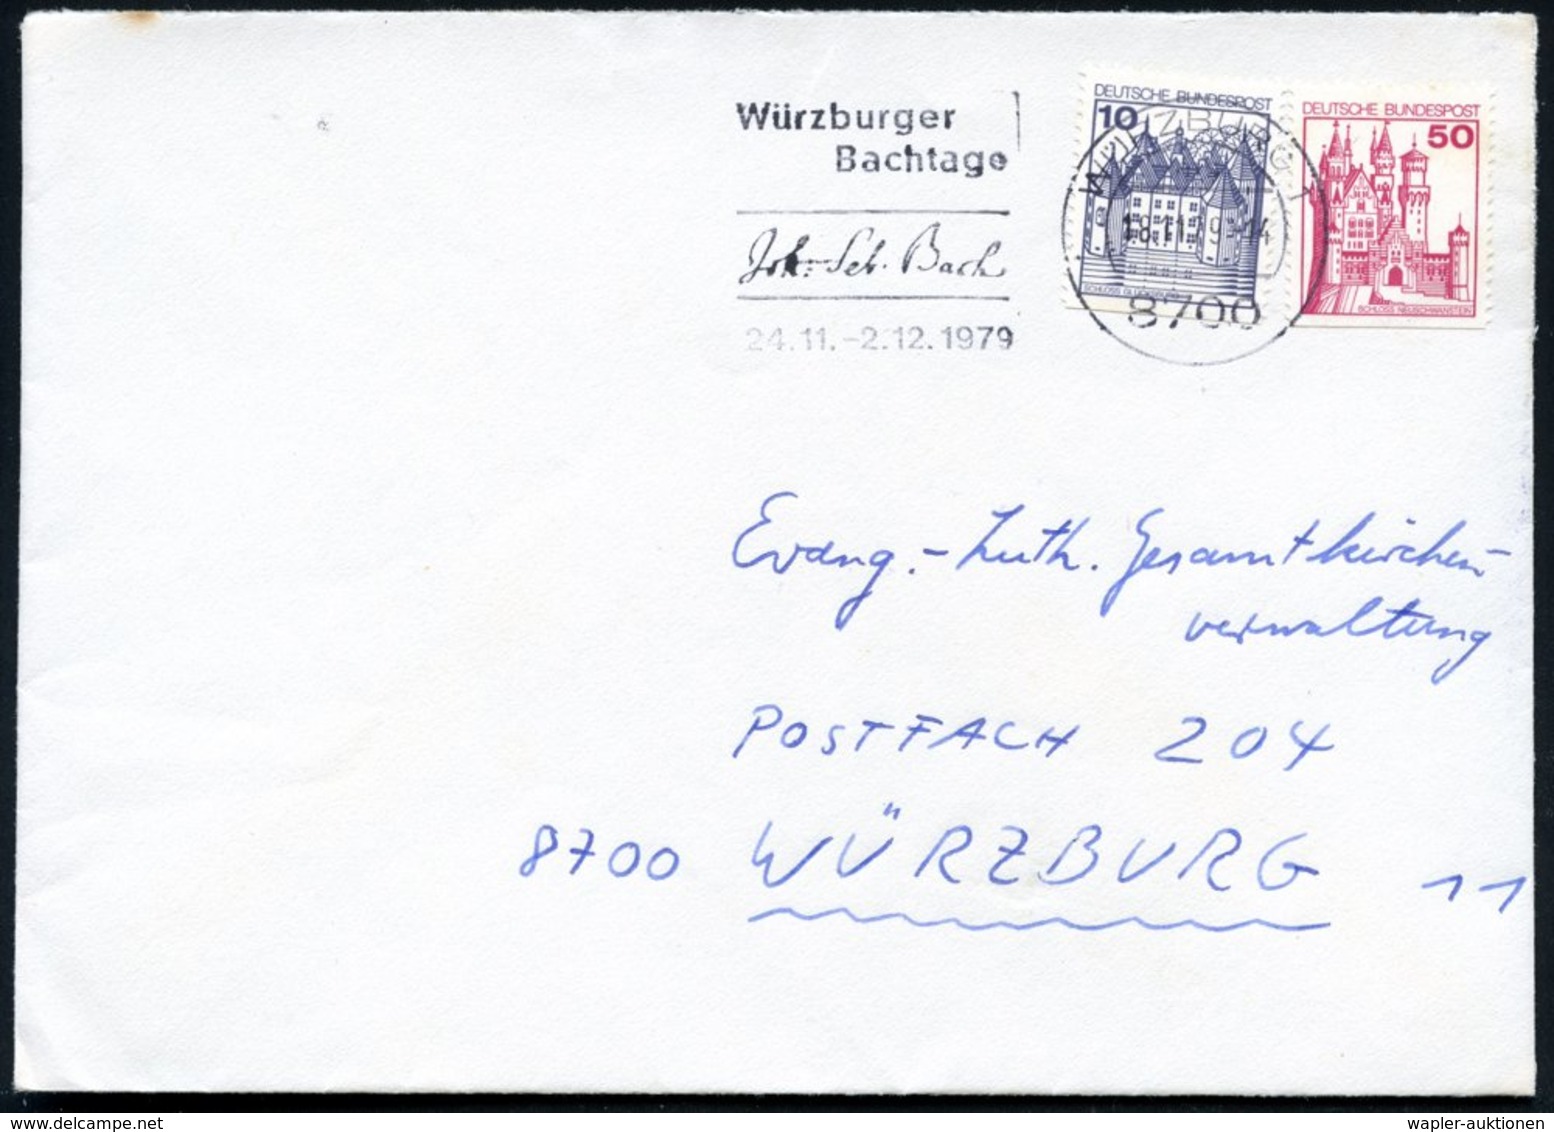 Würzburger
Bachtage
Joh. Seb. Bach
24.11.-2.12.1979
DEUTSCHE BUNDESPOST
10
SCHLOSS GLÜCKSBURG
DEUTSCHE BUNDESPOST
50
SCHLOSS NEUSCHWANSTEIN
WÜRZBURG 1
18.11.79-14
8700
Evang.-Luth. Gesamtkirchen-
verwaltung
POSTFACH 204
8700 WÜRZBURG 11
www.delcampe.net
wapler-auktionen